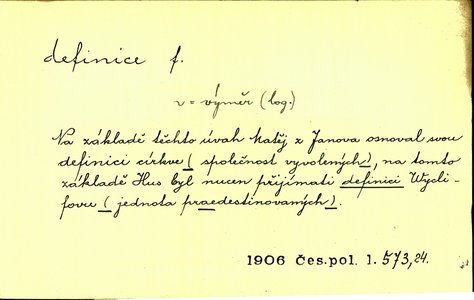 definice f.
v = výměr (log.)
Na základě těchto úvah Matěj z Janova osnoval svou
definici církve (společnost vyvolených), na tomto
základě Hus byl nucen přijímati definici Wycli-
fovu (jednota praedestinovaných).
1906 Čes.pol. 1. 573,24.